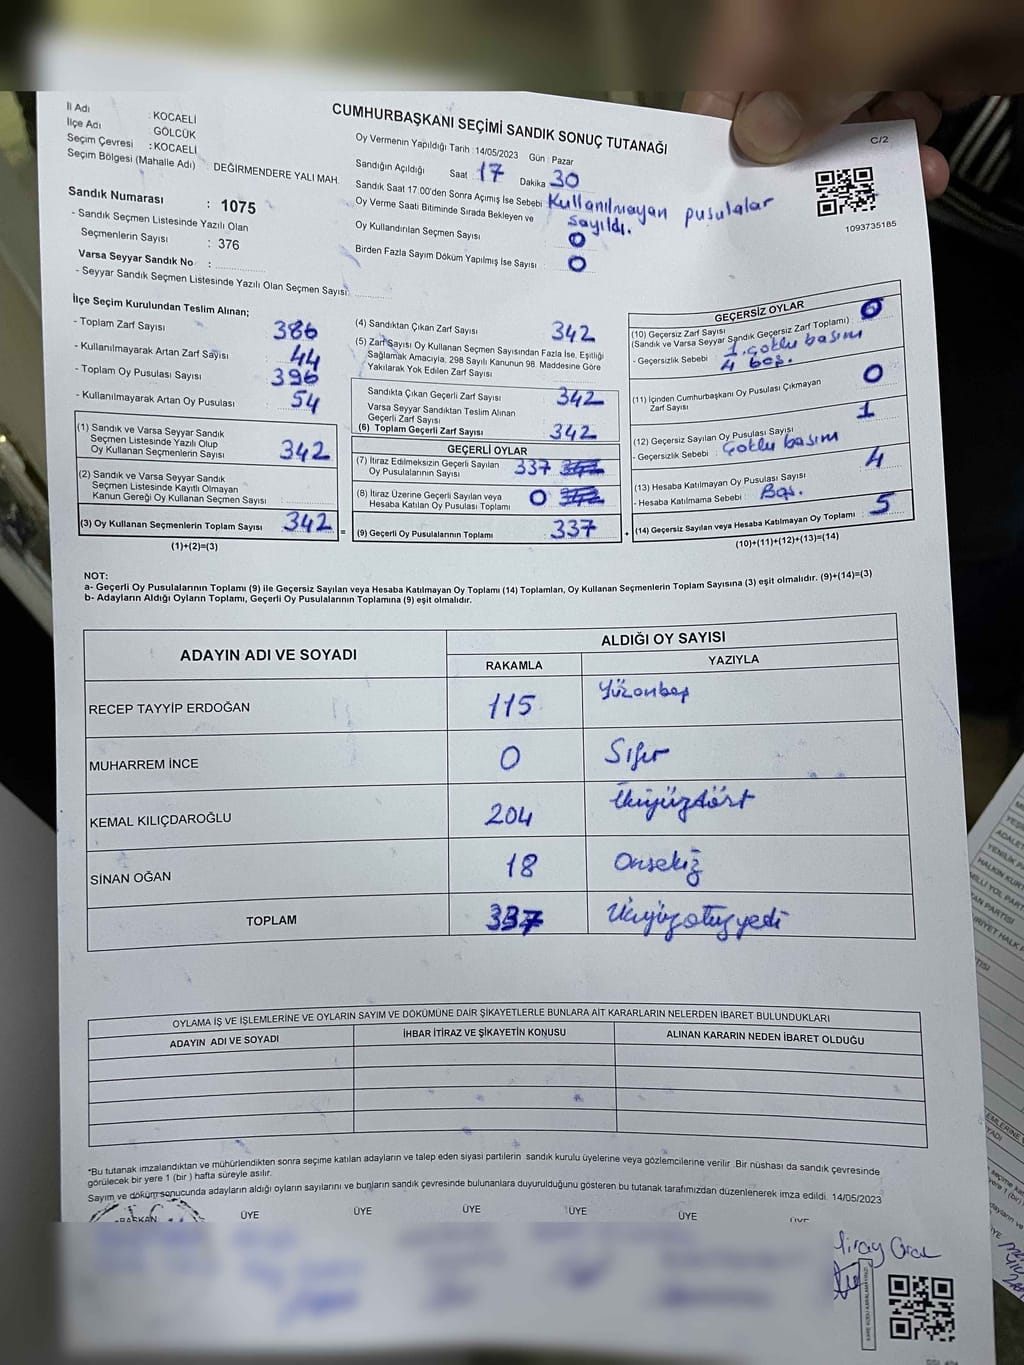 CUMHURBAŞKANI SEÇİMİ SANDIK SONUÇ TUTANAĞI
C/2
İl Adı : KOCAELİ
İlçe Adı : GÖLCÜK
Seçim Çevresi : KOCAELİ
Seçim Bölgesi (Mahalle Adı) : DEĞİRMENDERE YALI MAH.
Sandık Numarası : 1075
- Sandık Seçmen Listesinde Yazılı Olan
Seçmenlerin Sayısı : 376
Varsa Seyyar Sandık No :
- Seyyar Sandık Seçmen Listesinde Yazılı Olan Seçmen Sayısı:
Oy Vermenin Yapıldığı Tarih : 14/05/2023 Gün : Pazar
Sandığın Açıldığı Saat : 17 Dakika 30
Sandık Saat 17:00'den Sonra Açımış İse Sebebi : Kullanılmayan pusulalar
sayıldı.
Oy Verme Saati Bitiminde Sırada Bekleyen ve
Oy Kullandırılan Seçmen Sayısı 0
Birden Fazla Sayım Döküm Yapılmış İse Sayısı : 0
1093735185
İlçe Seçim Kurulundan Teslim Alınan;
- Toplam Zarf Sayısı 386
- Kullanılmayarak Artan Zarf Sayısı : 44
- Toplam Oy Pusulası Sayısı 396
- Kullanılmayarak Artan Oy Pusulası : 54
(1) Sandık ve Varsa Seyyar Sandık
Seçmen Listesinde Yazılı Olup
Oy Kullanan Seçmenlerin Sayısı : 342
(2) Sandık ve Varsa Seyyar Sandık
Seçmen Listesinde Kayıtlı Olmayan
Kanun Gereği Oy Kullanan Seçmen Sayısı :
(3) Oy Kullanan Seçmenlerin Toplam Sayısı : 342
(1)+(2)=(3)
(4) Sandıktan Çıkan Zarf Sayısı 342
(5) Zarf Sayısı Oy Kullanan Seçmen Sayısından Fazla İse, Eşitliği
Sağlamak Amacıyla, 298 Sayılı Kanunun 98. Maddesine Göre
Yakılarak Yok Edilen Zarf Sayısı
Sandıkta Çıkan Geçerli Zarf Sayısı : 342
Varsa Seyyar Sandıktan Teslim Alınan
Geçerli Zarf Sayısı
(6) Toplam Geçerli Zarf Sayısı : 342
GEÇERLİ OYLAR
(7) İtiraz Edilmeksizin Geçerli Sayılan
Oy Pusulalarının Sayısı 337
(8) İtiraz Üzerine Geçerli Sayılan veya
Hesaba Katılan Oy Pusulası Toplamı 0
= (9) Geçerli Oy Pusulalarının Toplamı 337
GEÇERSİZ OYLAR
(10) Geçersiz Zarf Sayısı
(Sandık ve Varsa Seyyar Sandık Geçersiz Zarf Toplamı) : 0
- Geçersizlik Sebebi : 1. çoklu basım
4 boş.
(11) İçinden Cumhurbaşkanı Oy Pusulası Çıkmayan
Zarf Sayısı 0
(12) Geçersiz Sayılan Oy Pusulası Sayısı : 1
- Geçersizlik Sebebi : çoklu basım
(13) Hesaba Katılmayan Oy Pusulası Sayısı 4
- Hesaba Katılmama Sebebi : Boş.
+ (14) Geçersiz Sayılan veya Hesaba Katılmayan Oy Toplamı : 5
(10)+(11)+(12)+(13)=(14)
NOT:
a- Geçerli Oy Pusulalarının Toplamı (9) ile Geçersiz Sayılan veya Hesaba Katılmayan Oy Toplamı (14) Toplamları, Oy Kullanan Seçmenlerin Toplam Sayısına (3) eşit olmalıdır. (9)+(14)=(3)
b- Adayların Aldığı Oyların Toplamı, Geçerli Oy Pusulalarının Toplamına (9) eşit olmalıdır.
ADAYIN ADI VE SOYADI
ALDIĞI OY SAYISI
RAKAMLA YAZIYLA
RECEP TAYYİP ERDOĞAN 115 Yüzonbeş
MUHARREM İNCE 0 Sıfır
KEMAL KILIÇDAROĞLU 204 İkiyüzdört
SİNAN OĞAN 18 Onsekiz
TOPLAM 337 Üçyüzotuzyedi
OYLAMA İŞ VE İŞLEMLERİNE VE OYLARIN SAYIM VE DÖKÜMÜNE DAİR ŞİKAYETLERLE BUNLARA AİT KARARLARIN NELERDEN İBARET BULUNDUKLARI
ADAYIN ADI VE SOYADI İHBAR İTİRAZ VE ŞİKAYETİN KONUSU ALINAN KARARIN NEDEN İBARET OLDUĞU
*Bu tutanak imzalandıktan ve mühürlendikten sonra seçime katılan adayların ve talep eden siyasi partilerin sandık kurulu üyelerine veya gözlemcilerine verilir .Bir nüshası da sandık çevresinde
görülecek bir yere 1 (bir ) hafta süreyle asılır.
Sayım ve döküm sonucunda adayların aldığı oyların sayılarını ve bunların sandık çevresinde bulunanlara duyurulduğunu gösteren bu tutanak tarafımızdan düzenlenerek imza edildi. 14/05/2023
BAŞKAN ÜYE ÜYE ÜYE ÜYE ÜYE ÜYE